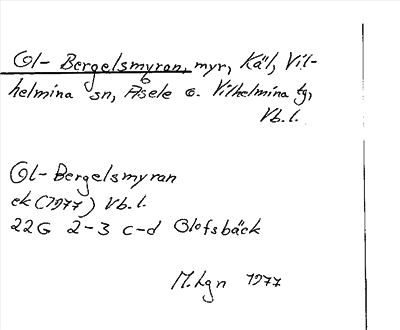 Ol-Bergelsmyran, myr, Käl, Vil-
helmina sn, Åsele o. Vilhelmina tg,
Vb.l.
Ol-Bergelsmyran
ek (1977) Vb.l.
22G 2-3 c-d Olofsbäck
M.Lgn 1977